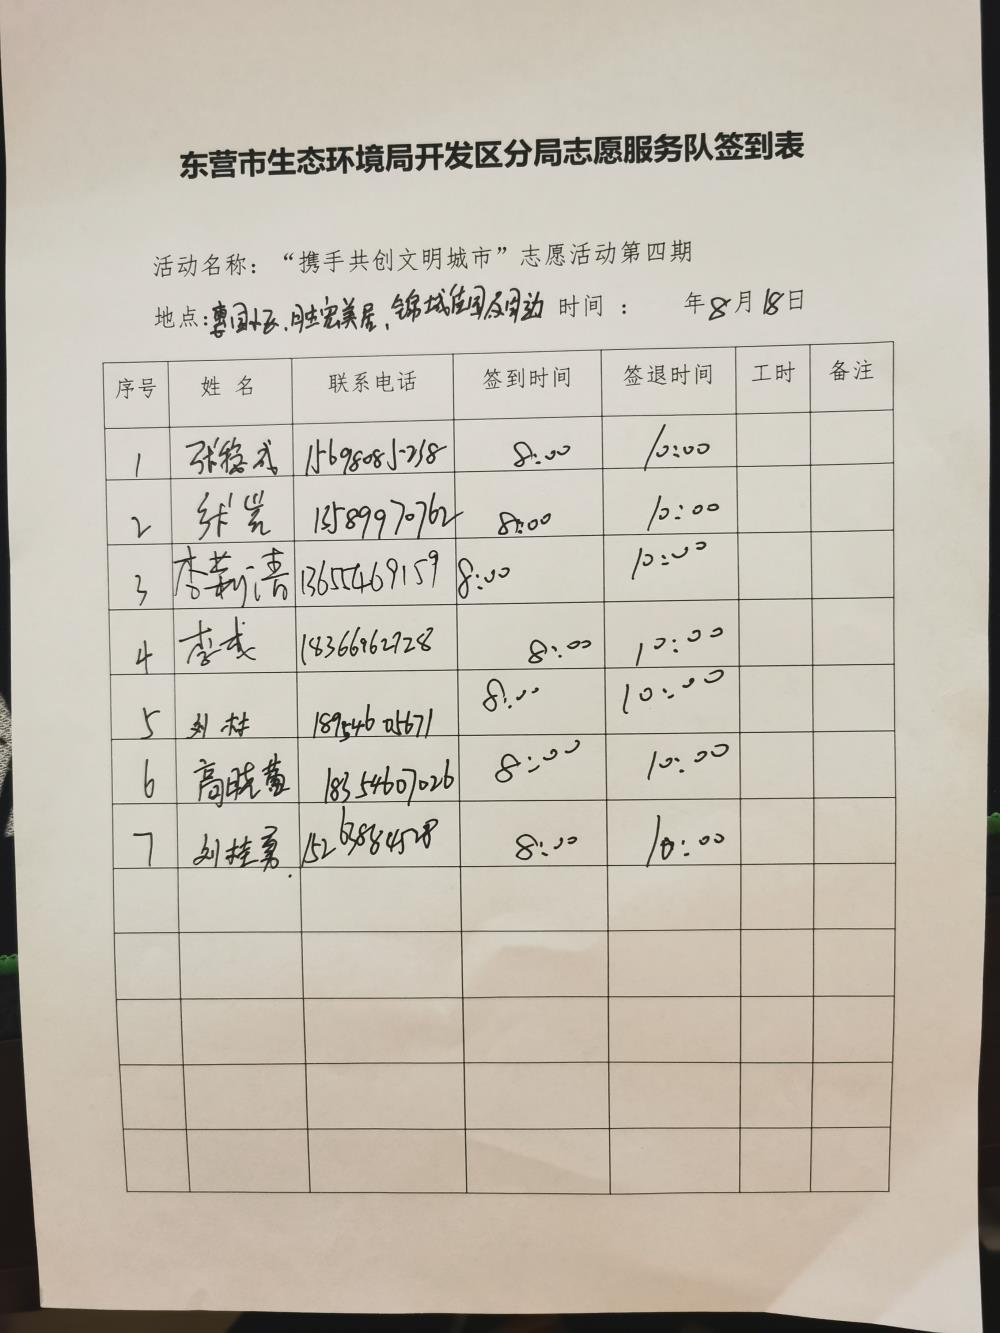 东营市生态环境局开发区分局志愿服务队签到表
活动名称：“携手共创文明城市”志愿活动第四期
地点:惠园小区、胜宏美居、锦城佳园及周边 时间： 年8月18日
序号 姓名 联系电话 签到时间 签退时间 工时 备注
1 张 15698085238 8:00 10:00
2 13589970762 8:00 10:00
3 李莉清 13655469159 8:00 10:00
4 李 18366962728 8:00 10:00
5 刘林 18954605671 8:00 10:00
6 高晓萱 18354607026 8:00 10:00
7 刘桂勇 8:00 10:00